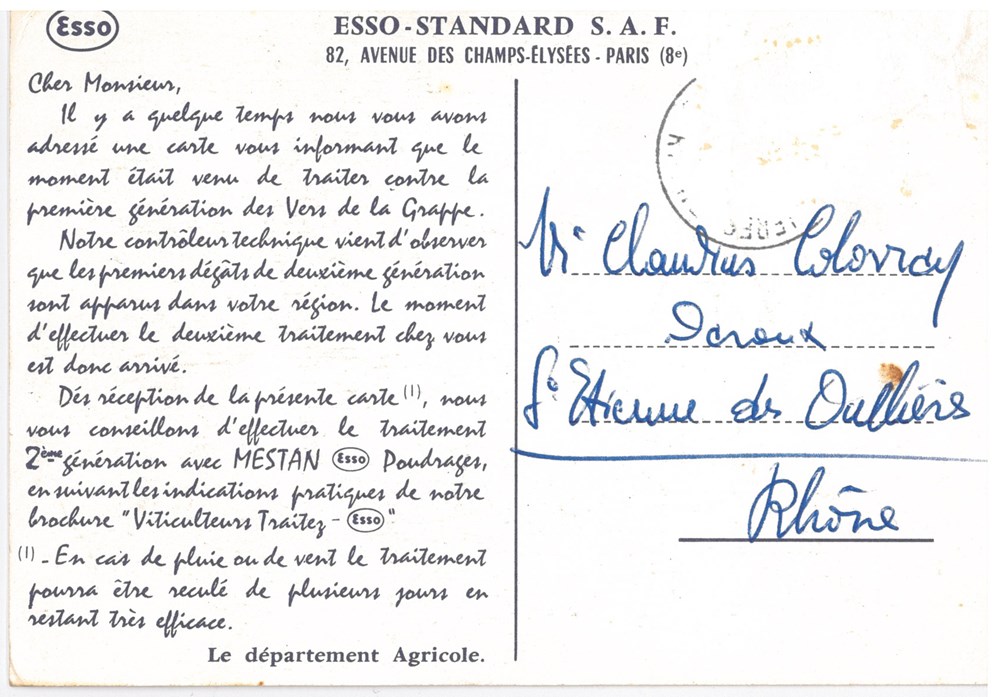 Esso
ESSO-STANDARD S. A. F.
82, AVENUE DES CHAMPS-ÉLYSÉES - PARIS (8e)
Cher Monsieur,
Il y a quelque temps nous vous avons
adressé une carte vous informant que le
moment était venu de traiter contre la
première génération des Vers de la Grappe.
Notre contrôleur technique vient d'observer
que les premiers dégâts de deuxième génération
sont apparus dans votre région. Le moment
d'effectuer le deuxième traitement chez vous
est donc arrivé.
Dés réception de la présente carte (1), nous
vous conseillons d'effectuer le traitement
2ème génération avec MESTAN Esso Poudrages,
en suivant les indications pratiques de notre
brochure "Viticulteurs Traitez - Esso"
(1) - En cas de pluie ou de vent le traitement
pourra être reculé de plusieurs jours en
restant très efficace.
Le département Agricole.
Mr Claudius Colovray
St Etienne des Oullières
Rhône